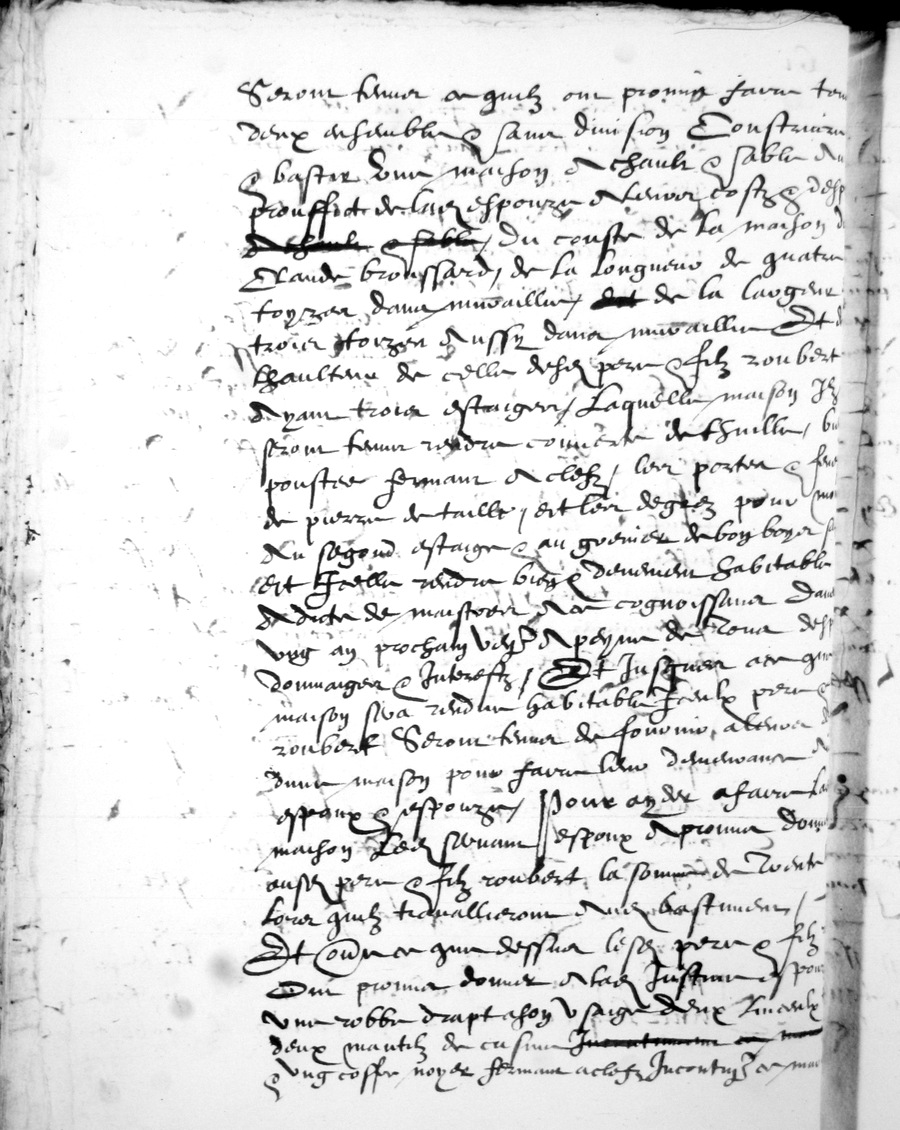 Seront tenuz ce quilz ont promis faire tou
deux ensemble & sans division Construire
& bastir Une maison A chaulx & sable Au
prouffict de lad espouze A leurs costz & desp
A chaulx & sable / du couste de la maison d
Claude broussard, de la longueur de quatre
toyzes dans muraille, de la largeur
trois toizes Aussy dans muraille Et d
lhaulteur de celle desd pere & filz roubert
Ayant trois estaiges / Laquelle maison Ilz
seront tenuz rendre couverte de thuille,
poustee fermant A clefz / les portes & fene
de pierre de taille / et les degrez pour mo
Au segond estaige & au grenier de bon boys
et Icelle rendre bien & deuement habitable
A dicte de maistres A ce cognoissans Dans
ung an prochain A peyne de Tous desp
dommaiges & Interestz / Et Jusques ace que
maison sera rendue habitable Iceulx pere &
roubert Seront tenuz de fournir
dune maison pour faire leur demeurance
espoux & espouze / Pour ayder afaire lad
maison Led servant espoux A promis donner
ausd pere & filz roubert la somme de Trente
lors quilz travallieront Aud bastiment /
Et Oultre ce que dessus lesd pere & filz
Ont promis donner A lad Justine espou
une robbe drapt a son usaige deux Linceulx
deux mantilz de cuisine
& ung coffre noyer fermant a clefz Incontinent ce mar